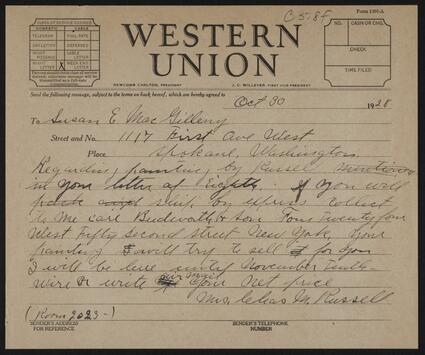 C-5-8f
Form 1207-A
CLASS OF SERVICE DESIRED
DOMESTIC CABLE
TELEGRAM FULL RATE
DAY LETTER DEFERRED
NIGHT MESSAGE CABLE LETTER
NIGHT LETTER X WEEK END LETTER
Patrons should check class of service desired; otherwise message will be transmitted as a full-rate communication
WESTERN
UNION
NO. CASH OR CHG.
CHECK
TIME FILED
NEWCOMB CARLTON, PRESIDENT J. C. WILLEVER, FIRST VICE-PRESIDENT
Send the following message, subject to the terms on back hereof, which are hereby agreed to
Oct 30 1928
To Susan E MacGilleny
Street and No. 1117 First Ave West
Place Spokane, Washington
Regarding painting by Russell mentioned
in your letter of If you will
ship by express collect
to me care Budworth & Son Four twenty four
West Fifty Second street New York, your
painting I will try to sell it for you
I will be here until November tenth
wire or write your net price
Mrs. Chas M. Russell
(Room 2023-)
SENDER'S ADDRESS FOR REFERENCE
SENDER'S TELEPHONE NUMBER